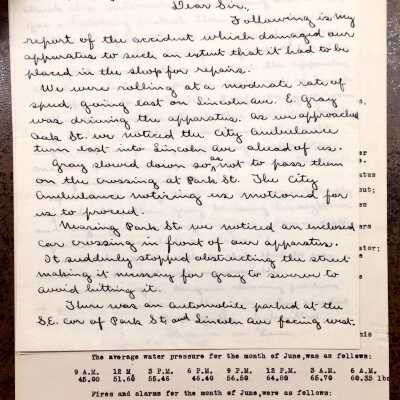 Dear Sir.,
Following is my
report of the accident which damaged our
apparatus to such an extent that it had to be
placed in the shop for repairs.
We were rolling at a moderate rate of
speed, going east on Lincoln Ave. E. Gray
was driving the apparatus. As we approached
Oak St. we noticed the City Ambulance
turn east into Lincoln Ave ahead of us.
Gray slowed down so as not to pass them
on the crossing at Park St. The City
Ambulance noticing us motioned for
us to proceed.
Nearing Park St. we noticed an enclosed
car crossing in front of our apparatus.
It suddenly stopped obstructing the street
making it necessary for Gray to swerve to
avoid hitting it.
There was an automobile parked at the
S.E. cor of Park St, and Lincoln Ave facing west.
The average water pressure for the month of June,was as follows:
9 A.M. 12 M 3 P.M. 6 P.M. 9 P.M. 12 P.M. 3 A.M. 6 A.M.
45.00 51.60 55.46 46.40 56.50 64.80 65.70 60.35 lbs
Fires and alarms for the month of June,were as follows: